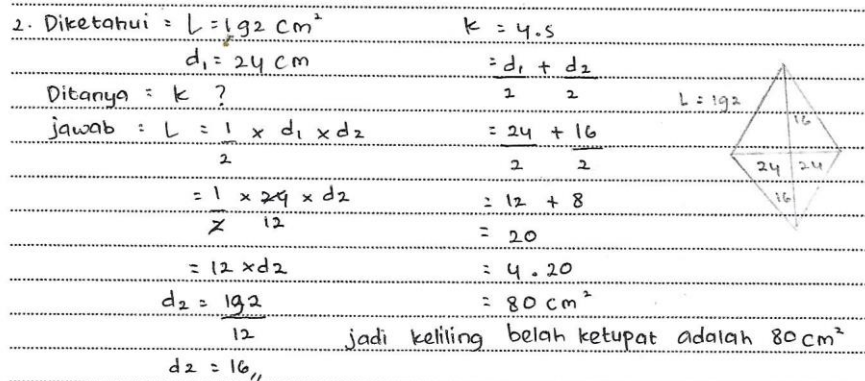 2. Diketahui : L = 192 cm²
d₁ = 24 cm
Ditanya : k ?
jawab : L = 1/2 × d₁ × d₂
= 1/2 × 24 × d₂
12
= 12 × d₂
d₂ = 192/12
d₂ = 16,,
k = 4.s
= d₁/2 + d₂/2
= 24/2 + 16/2
= 12 + 8
= 20
= 4 . 20
= 80 cm²
jadi keliling belah ketupat adalah 80 cm²
L = 192
16
24 24
16